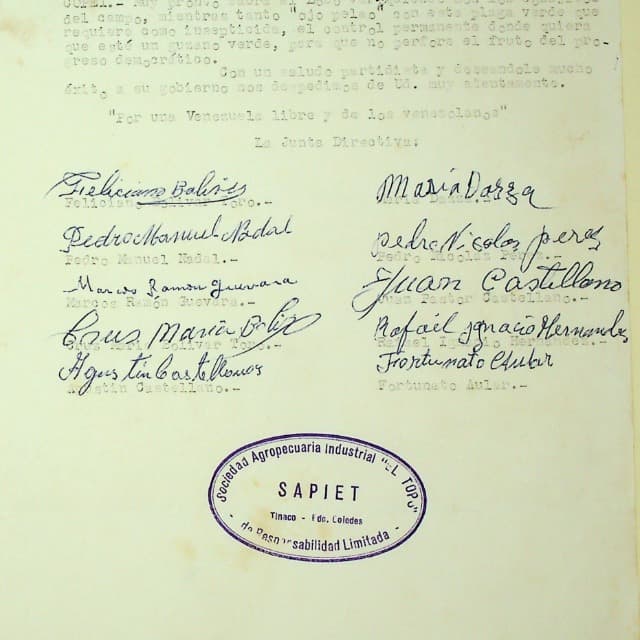 del campo, mientras tanto "ojo pelao" con esta plaga verde que
requiere como insepticida, el control permanente donde quiera
que esté un gusano verde, para que no perfore el fruto del pro-
greso democrático.
Con un saludo partidista y deseandole mucho
éxito a su gobierno nos despedimos de Ud. muy atentamente.
"Por una Venezuela libre y de los venezolanos"
La Junta Directiva:
Feliciano Bolivar María Daza
Feliciano Bolivar Toro.-
Pedro Manuel Nadal Pedro Nicolas perez
Pedro Manuel Nadal.- Pedro Nicolás Pérez.-
Marcos Ramon guevara Juan Castellano
Marcos Ramón Guevara.- Juan Pastor Castellano.-
Crus María Boliv Rafaél ignacio Hernandes
Crus María Bolivar Toro.- Rafael Ignacio Hernández.-
Agustin Castellanos Fortunato Aular
Agustín Castellano.- Fortunato Aular.-
Sociedad Agropecuaria Industrial "EL TOPO"
SAPIET
Tinaco - Edo. Cojedes
de Responsabilidad Limitada